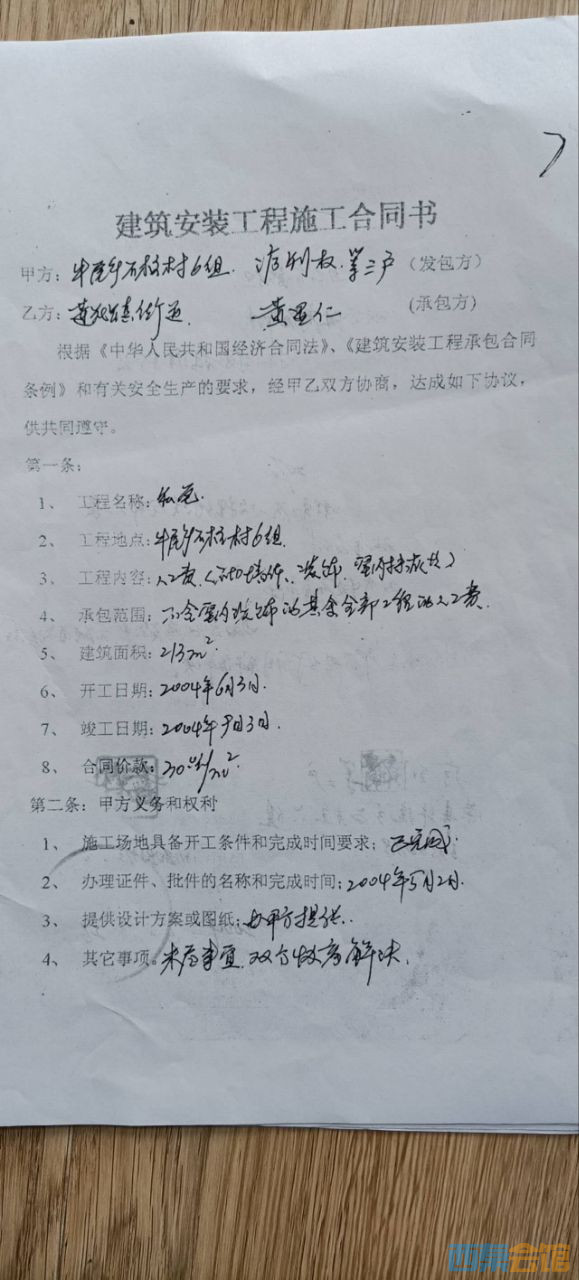 建筑安装工程施工合同书
甲方：牛尾乡石柱村6组. 等三户（发包方）
乙方： （承包方）
根据《中华人民共和国经济合同法》、《建筑安装工程承包合同
条例》和有关安全生产的要求，经甲乙双方协商，达成如下协议，
供共同遵守。
第一条：
1、 工程名称：
2、 工程地点：牛尾乡石柱村6组.
3、 工程内容：人工费
4、 承包范围：不含室内装饰的其余全部工程的人工费.
5、 建筑面积：213m².
6、 开工日期：2004年6月3日.
7、 竣工日期：2004年9月3日.
8、 合同价款：/m²
第二条：甲方义务和权利
1、 施工场地具备开工条件和完成时间要求：已完成.
2、 办理证件、批件的名称和完成时间：2004年5月2日.
3、 提供设计方案或图纸：由甲方提供.
4、 其它事项。未尽事宜.双方协商解决.
西祠会馆